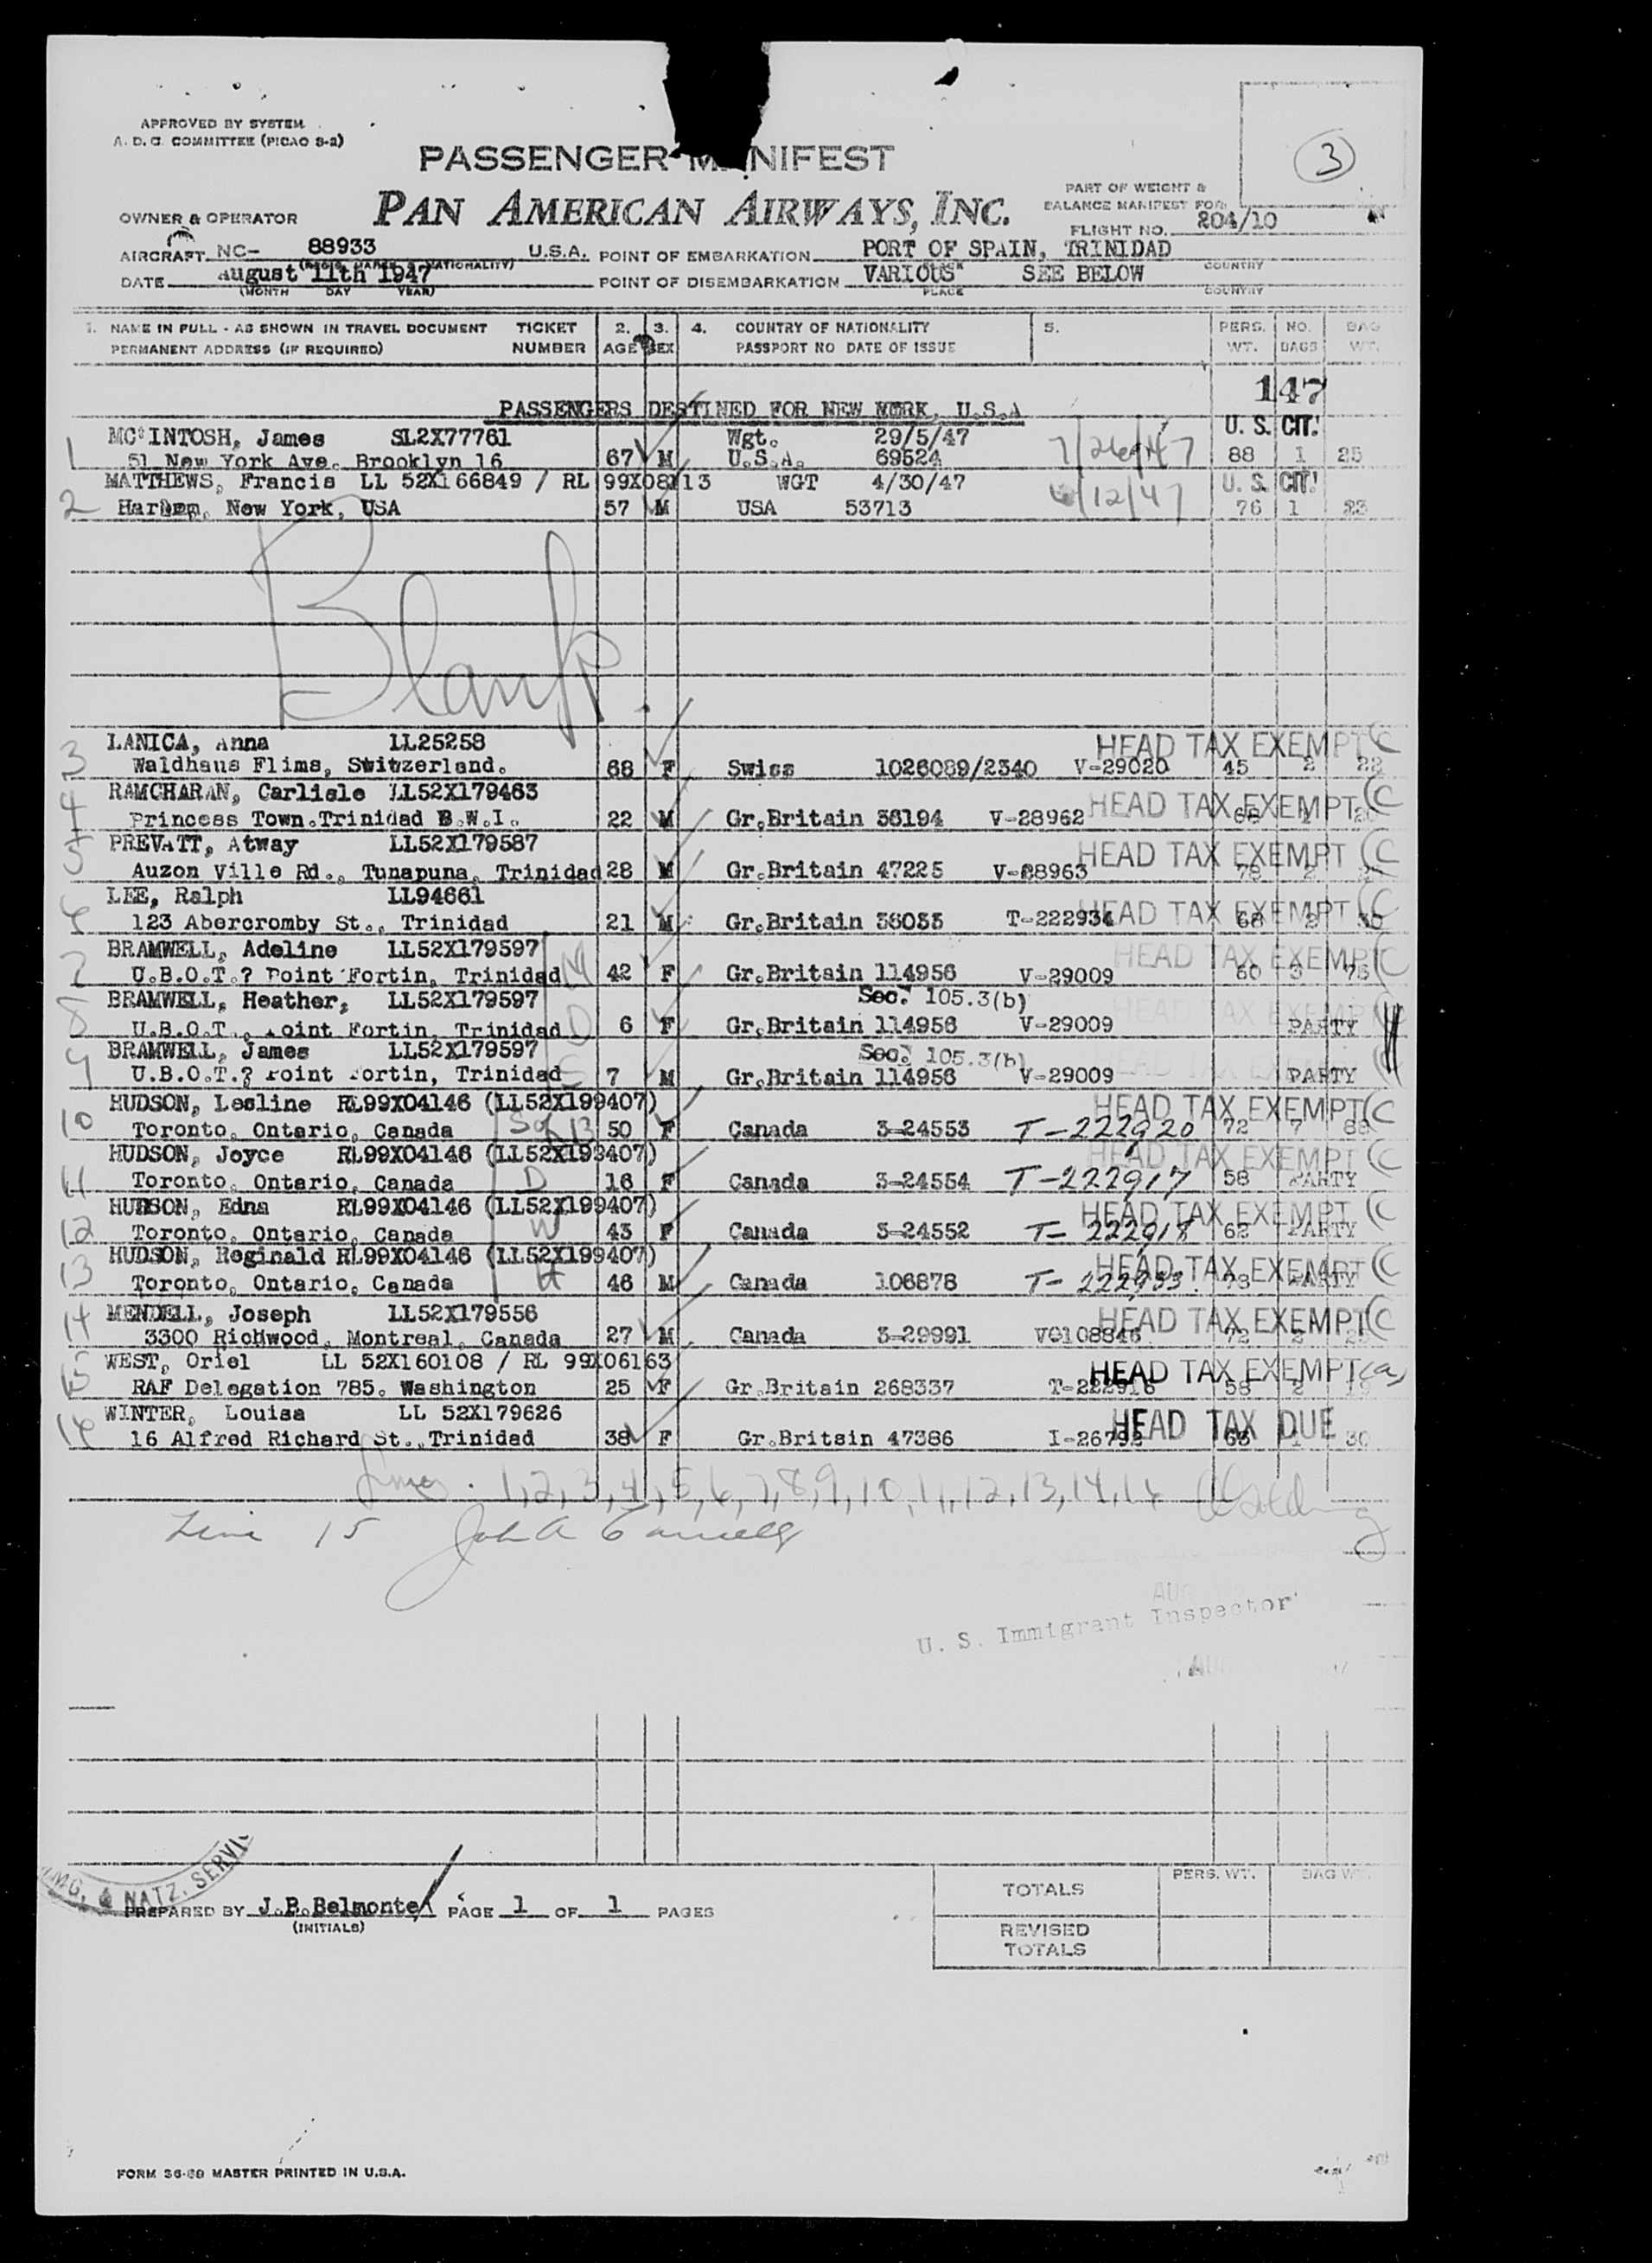 APPROVED BY SYSTEM
A. D. C. COMMITTEE (PICAO S-2)
3
PASSENGER M NIFEST
PAN AMERICAN AIRWAYS, INC.
PART OF WEIGHT &
BALANCE MANIFEST FOR
OWNER & OPERATOR
FLIGHT NO. 204/10
AIRCRAFT NC- 88933 U.S.A. POINT OF EMBARKATION PORT OF SPAIN, TRINIDAD
DATE August 11th 1947 POINT OF DISEMBARKATION VARIOUS SEE BELOW
(MONTH DAY YEAR) PLACE COUNTRY
1. NAME IN FULL - AS SHOWN IN TRAVEL DOCUMENT TICKET 2. 3. 4. COUNTRY OF NATIONALITY 5. PERS. NO. BAG
PERMANENT ADDRESS (IF REQUIRED) NUMBER AGE SEX PASSPORT NO DATE OF ISSUE WT. BAGS WT.
147
PASSENGERS DESTINED FOR NEW YORK, U.S.A
1 MC'INTOSH, James SL2X77761 Wgt. 29/5/47 7/26/47 U. S. CIT.
51 New York Ave. Brooklyn 16 67 M U.S.A. 69524 88 1 25
2 MATTHEWS, Francis LL 52X166849 / RL 99X08113 WGT 4/30/47 U. S. CIT!
New York, USA 57 M USA 53713 /12/47 76 1 23
Blank.
3 LANICA, Anna LL25258 HEAD TAX EXEMPT C
Waldhaus Flims, Switzerland. 68 F Swiss 1026089/2340 V-29020 45 2 22
4 RAMCHARAN, Carlisle LL52X179463 HEAD TAX EXEMPT (C
Princess Town.Trinidad B.W.I. 22 M Gr.Britain 36194 V-28962
5 PREVATT, Atway LL52X179587 HEAD TAX EXEMPT (C
Auzon Ville Rd., Tunapuna, Trinidad 28 M Gr.Britain 47225 V-28963 78 2
6 LEE, Ralph LL94661
123 Abercromby St., Trinidad 21 M Gr.Britain 36033 T-222934 HEAD TAX EXEMPT (C 68 2 30
7 BRAMWELL, Adeline LL52X179597 M HEAD TAX EXEMPT (C
U.B.O.T.? Point Fortin, Trinidad 42 F Gr.Britain 114956 V-29009 60 3 75
8 BRAMWELL, Heather, LL52X179597 Sec. 105.3(b) HEAD TAX EXEMPT
U.B.O.T., Point Fortin, Trinidad D 6 F Gr.Britain 114956 V-29009 PARTY
9 BRAMWELL, James LL52X179597 Sec. 105.3(b)
U.B.O.T.? Point Fortin, Trinidad S 7 M Gr.Britain 114956 V-29009 PARTY
10 HUDSON, Lesline RL99X04146 (LL52X199407) HEAD TAX EXEMPT (C
Toronto, Ontario, Canada 50 F Canada 3-24553 T-222920 72 7 88
11 HUDSON, Joyce RL99X04146 (LL52X199407) HEAD TAX EXEMPT (C
Toronto, Ontario, Canada D 16 F Canada 3-24554 T-222917 58 PARTY
12 HUDSON, Edna RL99X04146 (LL52X199407) HEAD TAX EXEMPT (C
Toronto, Ontario, Canada W 43 F Canada 3-24552 T-222918 62 PARTY
13 HUDSON, Reginald RL99X04146 (LL52X199407) HEAD TAX EXEMPT (C
Toronto, Ontario, Canada H 46 M Canada 106878 T-222933 78 PARTY
14 MENDELL, Joseph LL52X179556 HEAD TAX EXEMPT (C
3300 Richwood, Montreal, Canada 27 M Canada 3-29991 VO108846 72 2
15 WEST, Oriel LL 52X160108 / RL 99X06163 HEAD TAX EXEMPT (a)
RAF Delegation 785. Washington 25 F Gr.Britain 268337 T-222916 58 2 19
16 WINTER, Louisa LL 52X179626 HEAD TAX DUE
16 Alfred Richard St.,Trinidad 38 F Gr.Britain 47386 I-26792 63 1 30
Lines. 1,2,3,4,5,6,7,8,9,10,11,12,13,14,16
Line 15 John A
U. S. Immigrant Inspector
IMG. & NATZ. SERVI
PREPARED BY J.P.Belmonte PAGE 1 OF 1 PAGES
(INITIALS)
PERS. WT. BAG WT.
TOTALS
REVISED
TOTALS
FORM 36-69 MASTER PRINTED IN U.S.A.